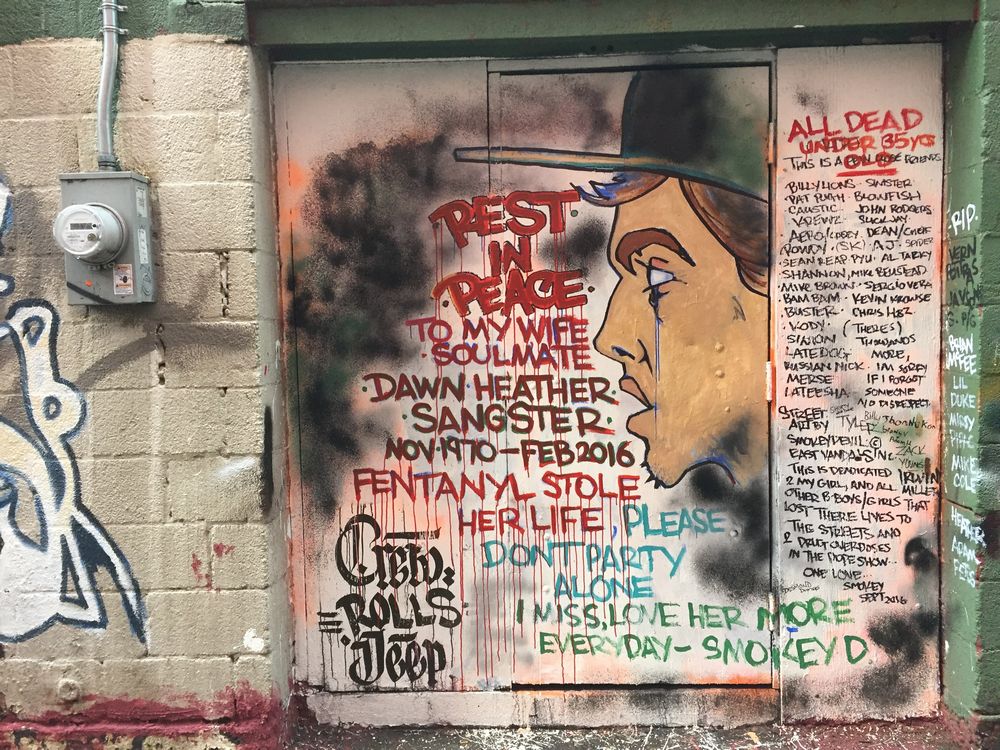 REST
IN
PEACE
TO MY WIFE
SOULMATE
DAWN HEATHER
SANGSTER
NOV·1970 - FEB 2016
FENTANYL STOLE
HER LIFE, PLEASE
DONT PARTY
ALONE
I MISS, LOVE HER MORE
EVERYDAY - SMOKEY D.
Crew:
ROLLS
Deep
ALL DEAD
UNDER 35 YRS
THIS IS A FRIENDS
BILLY LIONS · SINISTER
BLOWFISH
CAUSTIC · JOHN RODGERS
AERO/ DEAN/CHIEF
ROWDY · (SK) A.J. SPIDER
SEAN REAP. PYU · AL TABKY
SHANNON, MIKE
MIKE BROWN · SERGIO VERA
BAM BAM · KEVIN KROWSE
BUSTER · CHRIS
· KODY · (THERES)
SIMON THOUSANDS
LATEDOG MORE,
RUSSIAN NICK · IM SORRY
MERSE IF I FORGOT
LATEESHA · SOMEONE
NO DISRESPECT
STREET
ART BY TYLER
SMOKEY DEVIL ©
ZACK
EAST VANDALS INC. YOUNG
THIS IS DEADICATED IRWIN
2 MY GIRL, AND ALL MILLER
OTHER B-BOYS/GIRLS THAT
LOST THERE LIVES TO
THE STREETS AND
2 DRUG OVERDOSES
IN THE DOPE SHOW...
ONE LOVE...
SMOKEY
SEPT 2016
RIP
BRIAN
MCFEE
LIL
DUKE
MISSY
MIKE
COLE
HEATHER
ADAM